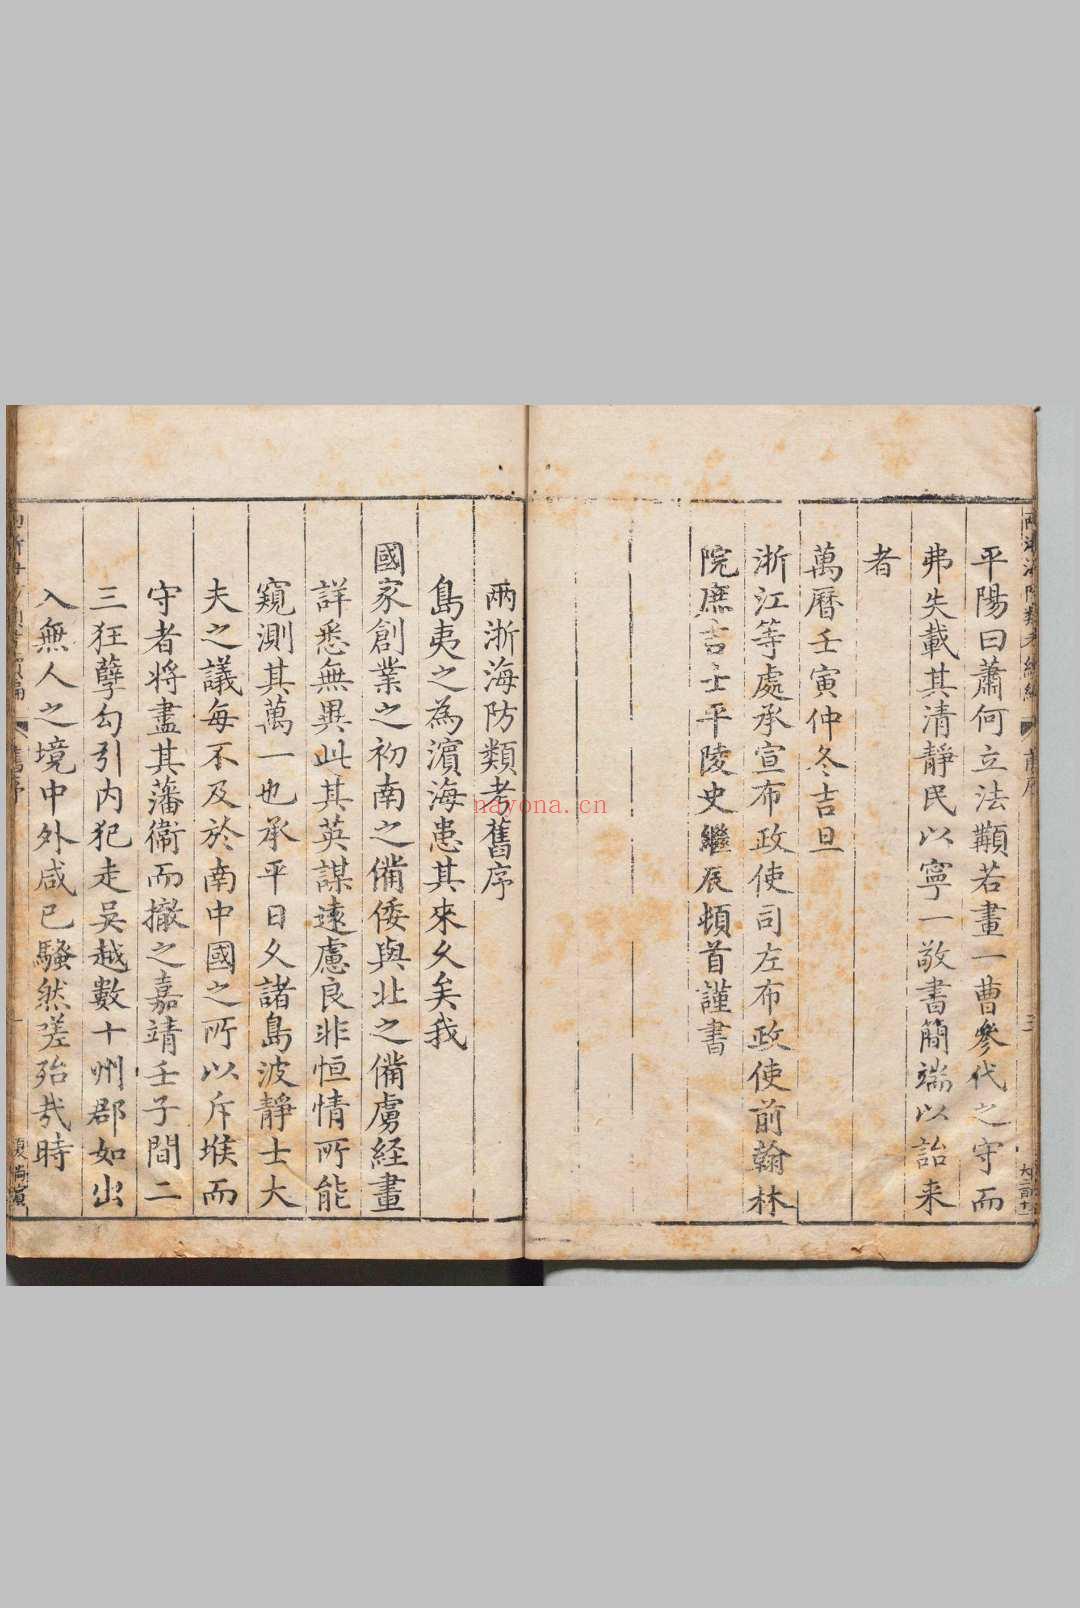 平陽曰蕭何立法顜若畫一曹參代之守而
弗失載其清靜民以寧一敬書簡端以詒来
者
萬曆壬寅仲冬吉旦
浙江等處承宣布政使司左布政使前翰林
院庶吉士平陵史繼辰頓首謹書
兩浙海防類考舊序
島夷之為濵海患其來久矣我
國家創業之初南之備倭與北之備虜経畫
詳悉無異此其英謀遠慮良非恒情所能
窺測其萬一也承平日久諸島波靜士大
夫之議每不及於南中國之所以斥堠而
守者将盡其藩衛而撤之嘉靖壬子間二
三狂孽勾引内犯走吴越數十州郡如出
入無人之境中外咸已騷然嗟殆㢤時
nayona.cn